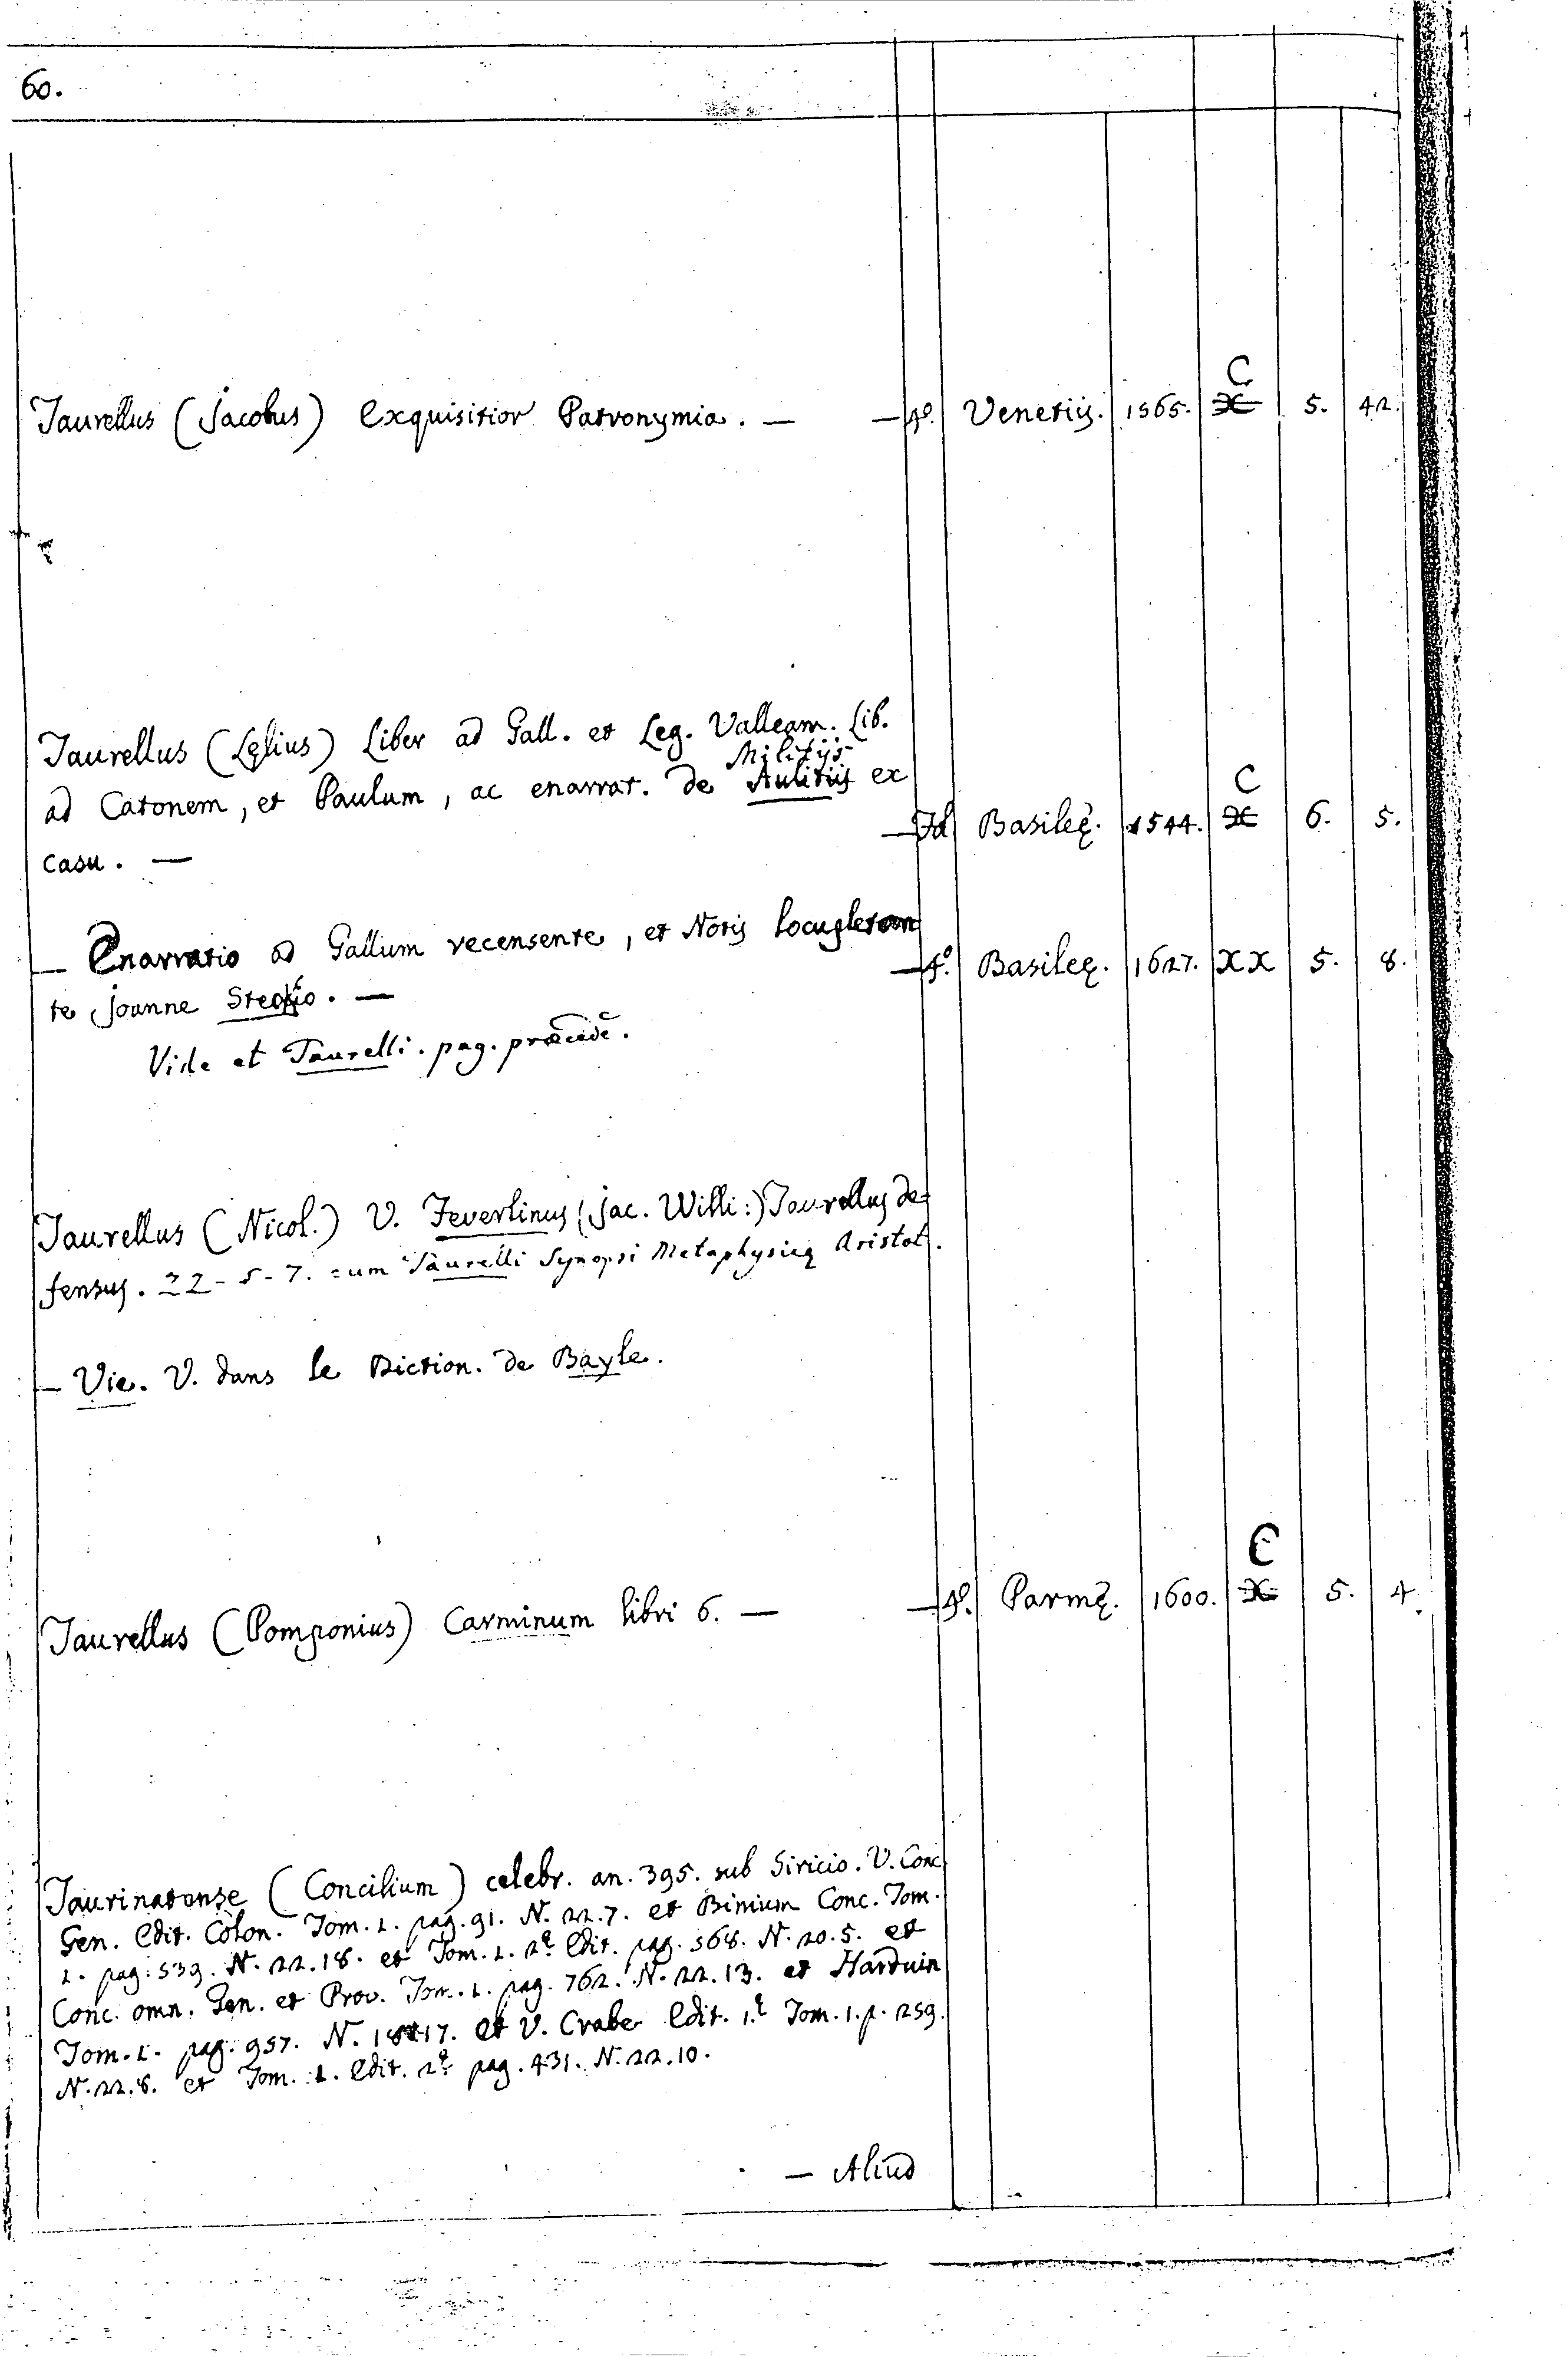 60.
Taurellus (Jacobus) Exquisitior Patronymia. — — 4º. Venetiis. 1565. C X 5. 42.
Taurellus (Lęlius) Liber ad Gall. et Leg. Valleam. Lib.
Militijs
ad Catonem, et Paulum, ac enarrat. de Aulitiis ex
casu. — — Fol. Basileę. 1544. C X 6. 5.
— Enarratio ad Gallium recensente, et Notis
te Joanne . — — 4º. Basileę. 1627. XX 5. 8.
Vide et Taurelli. pag. præcedē.
Taurellus (Nicol.) V. Feverlinus (Jac. Willi:) Taurellus de-
fensus. 22-5-7. cum Taurelli Synopsi Metaphysicę Aristot.
— Vie. V. dans le Diction. de Bayle.
Taurellus (Pomponius) Carminum libri 6. — — 4º. Parmę. 1600. C X 5. 4.
Taurinatense (Concilium) celebr. an. 395. sub Siricio. V. Conc.
Gen. Edit. Colon. Tom. 1. pag. 91. N. 22.7. et Binium Conc. Tom.
1. pag. 539. N. 22.18. et Tom. 1. 2ª Edit. pag. 568. N. 20.5. et
Conc. omn. Gen. et Prov. Tom. 1. pag. 762. N. 22.13. et Harduin
Tom. 1. pag. 957. N. 17. et V. Crabe Edit. 1.ª Tom. 1. p. 259.
N. 22.8. et Tom. 1. Edit. 2ª pag. 431. N. 22.10.
— Aliud